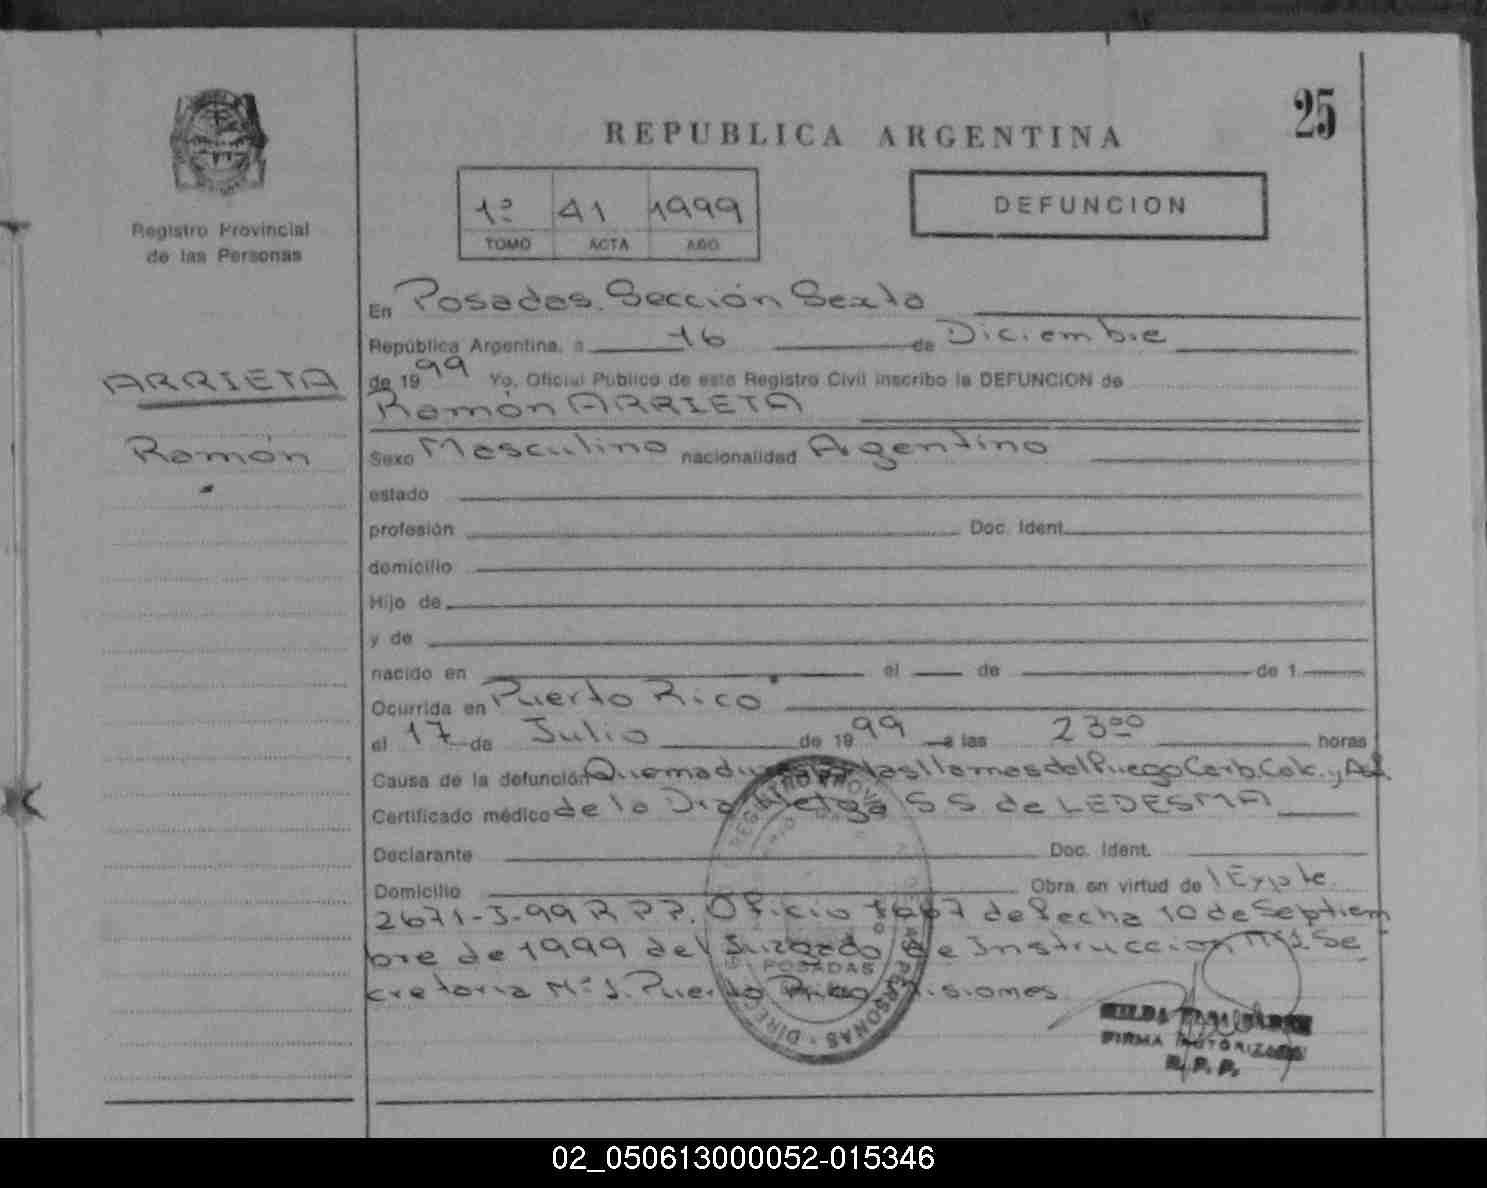 25
REPUBLICA ARGENTINA
1º 41 1999
TOMO ACTA AÑO
DEFUNCION
Registro Provincial
de las Personas
ARRIETA
Ramón
En Posadas. Sección Sexta
República Argentina, a 16 de Diciembre
de 1999 Yo, Oficial Público de este Registro Civil inscribo la DEFUNCION de
Ramón ARRIETA
Sexo Masculino nacionalidad Argentino
estado
profesión Doc. Ident.
domicilio
Hijo de
y de
nacido en el de de 1
Ocurrida en Puerto Rico
el 17 de Julio de 1999 a las 23 00 horas
Causa de la defunción las llamas del Fuego Carb. Cok. y
Certificado médico de la Dra S S. de LEDESMA
Declarante Doc. Ident.
Domicilio Obra en virtud de 1 Expte.
2671-J-99 R P P. Oficio de fecha 10 de Septiem
bre de 1999 del Juzgado de Instrucción Nº 1. Se
cretaria Nº 1. Puerto Rico Misiones
POSADAS
PERSONAS
HILDA
FIRMA AUTORIZADA
R. P. P.
02_050613000052-015346